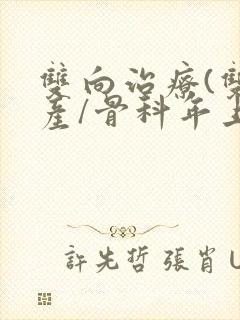 雙向治療(雙
產/骨科年上
許先哲 張肖 U